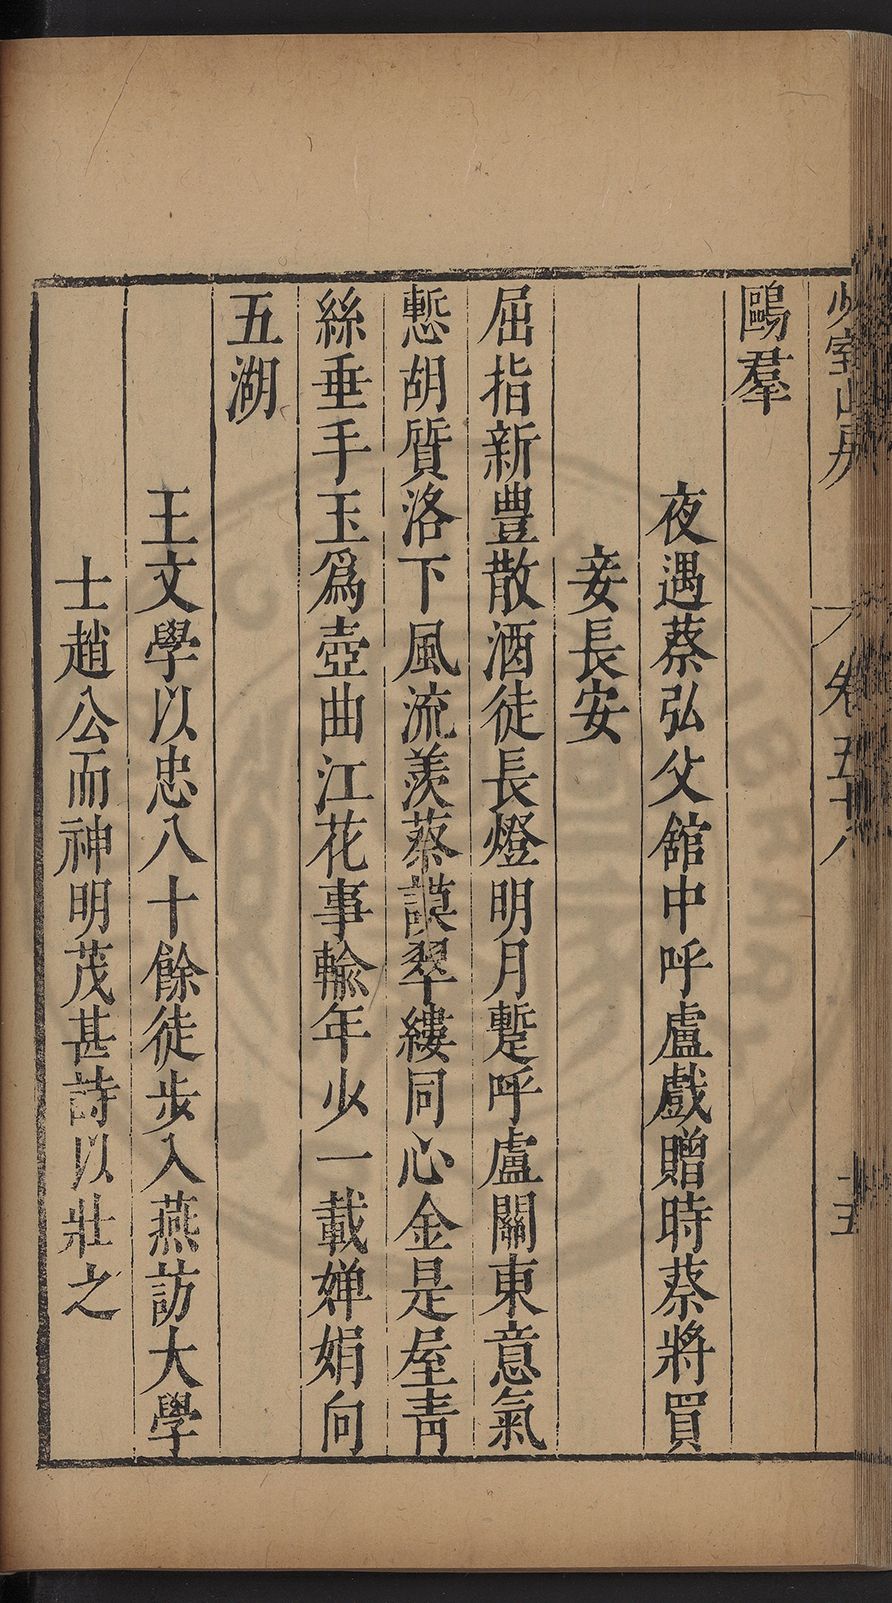 少室山房 卷五十八 十五
鷗羣
夜遇蔡弘父舘中呼盧戲贈時蔡將買
妾長安
屈指新豐散酒徒長燈明月蹔呼盧關東意氣
慙胡質洛下風流羨蔡謨翠縷同心金是屋青
絲垂手玉爲壺曲江花事輸年少一載嬋娟向
五湖
王文學以忠八十餘徒步入燕訪大學
士趙公而神明茂甚詩以壯之